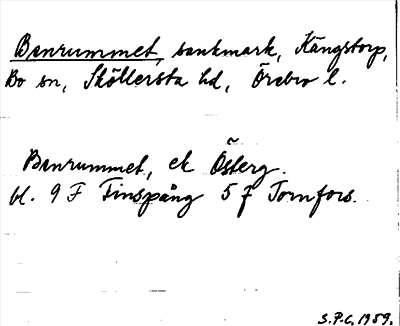 Benrummet, sankmark, Kängstorp,
Bo sn, Sköllersta hd, Örebro l.
Benrummet, ek Österg.
bl. 9 F Finspång 5 f Tornfors.
S.P.C, 1959.